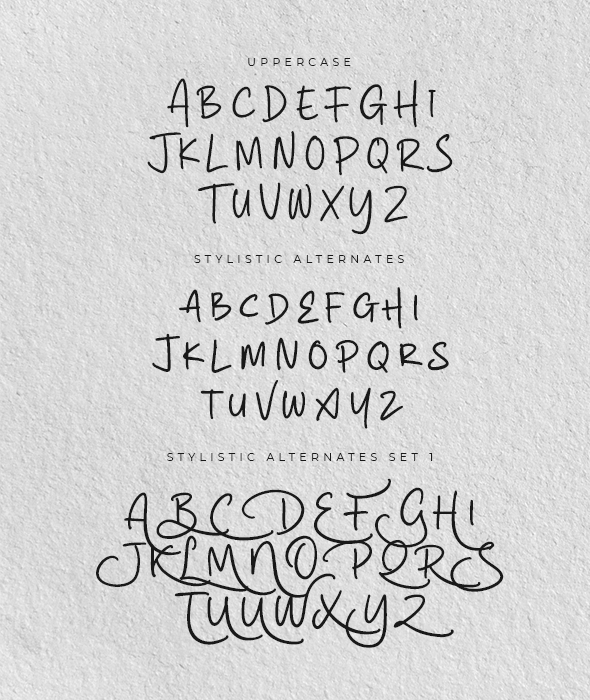 UPPERCASE
ABCDEFGHI
JKLMNOPQRS
TUVWXYZ
STYLISTIC ALTERNATES
ABCDEFGHI
JKLMNOPQRS
TUVWXYZ
STYLISTIC ALTERNATES SET 1
ABCDEFGHI
JKLMNOPQRS
TUVWXYZ